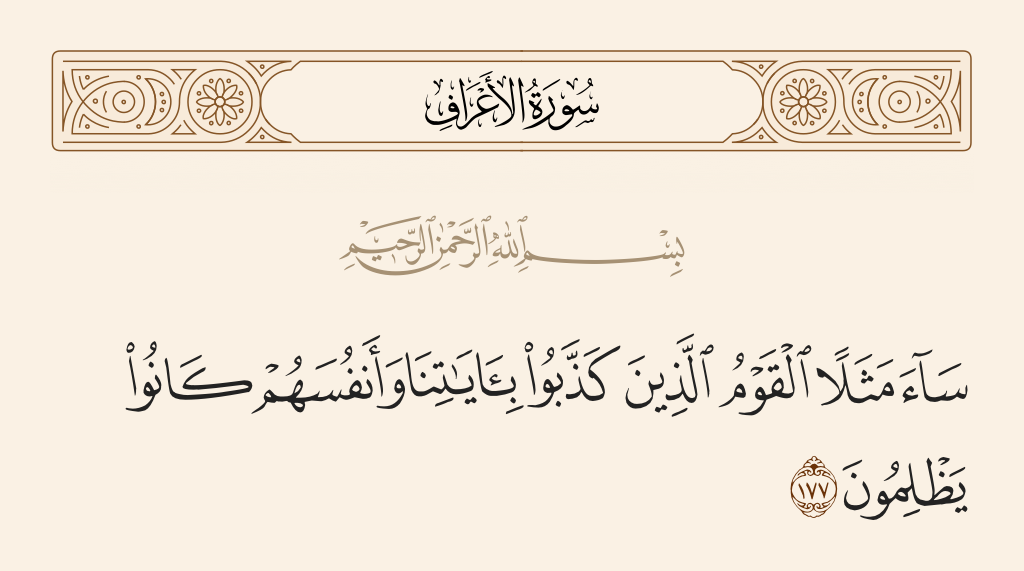 سُورَةُ الأَعْرَافِ
بِسْمِ ٱللَّهِ ٱلرَّحْمَٰنِ ٱلرَّحِيمِ
سَآءَ مَثَلًا ٱلْقَوْمُ ٱلَّذِينَ كَذَّبُوا۟ بِـَٔايَـٰتِنَا وَأَنفُسَهُمْ كَانُوا۟
يَظْلِمُونَ ١٧٧